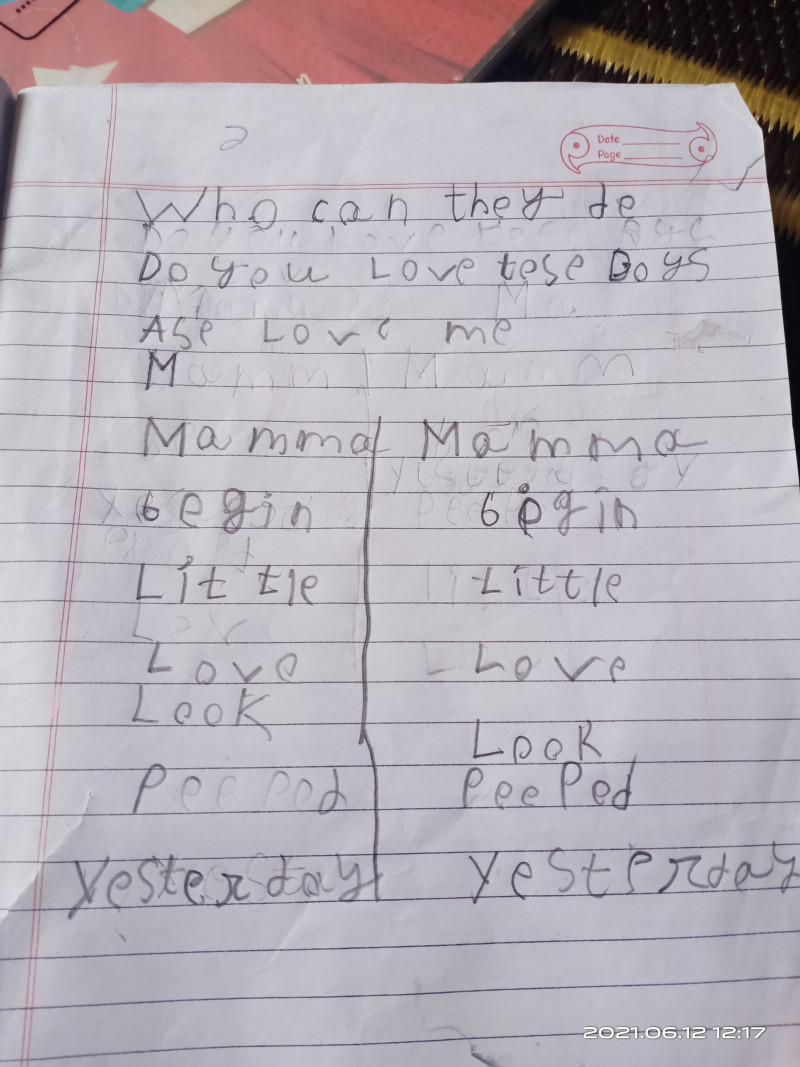 2
Date
Page
Who can they de
Do you Love tese Doys
Ase Love me
M
Mamma Mamma
6egin 6egin
Little Little
Love Love
Look
Look
Peeped PeePed
Yesterday Yesterday
2021.06.12 12:17